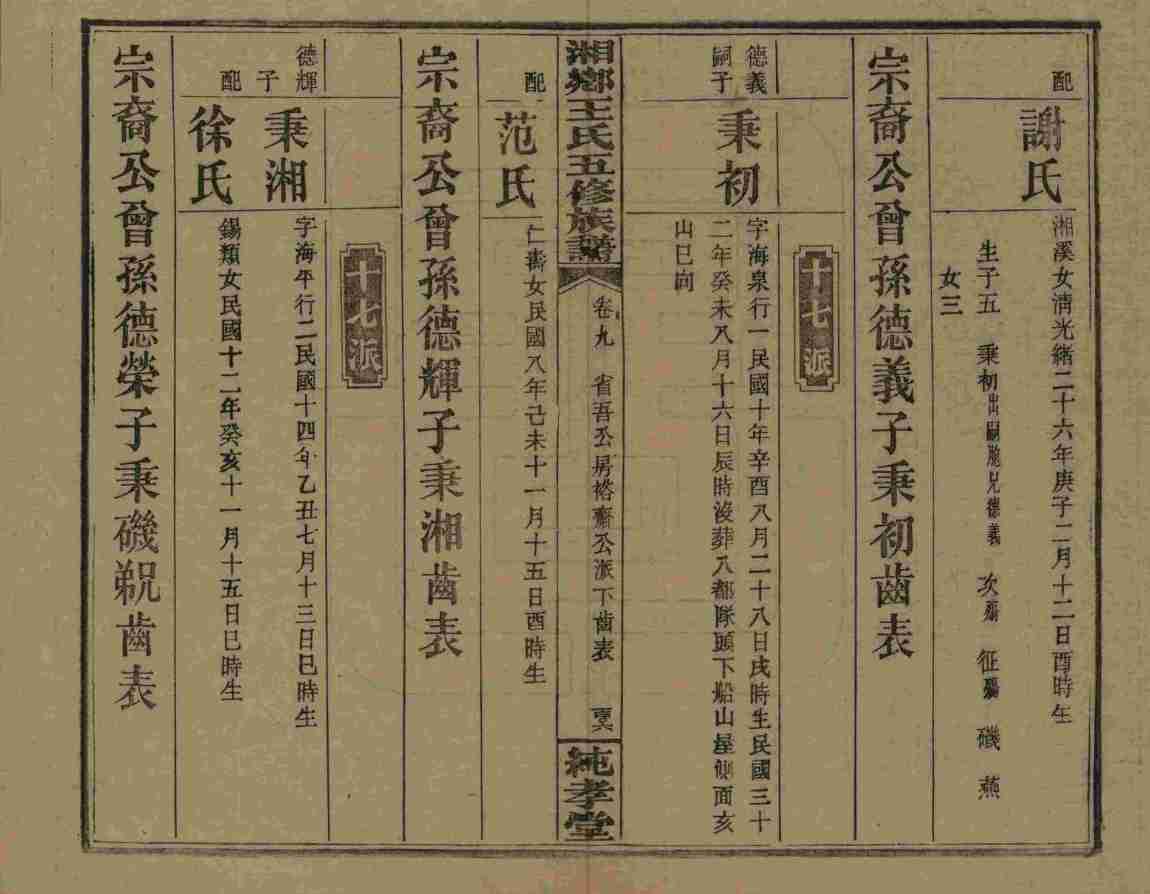 配
謝氏
湘溪女淸光緖二十六年庚子二月十二日酉時生
生子五　秉初出嗣胞兄德義　次殤　征殤　磯　燕
女三
宗裔公曾孫德義子秉初齒表
十七派
德義
嗣子
秉初
字海泉行一民國十年辛酉八月二十八日戌時生民國三十
二年癸未八月十六日辰時沒葬八都隊頭下船山屋側面亥
山巳向
配
范氏
仁壽女民國八年己未十一月十五日酉時生
湘鄉王氏五修族譜
卷九　省吾公房裕齋公派下齒表
純孝堂
宗裔公曾孫德輝子秉湘齒表
十七派
德輝
子
秉湘
字海平行二民國十四年乙丑七月十三日巳時生
配
徐氏
錫類女民國十二年癸亥十一月十五日巳時生
宗裔公曾孫德榮子秉磯鄴齒表